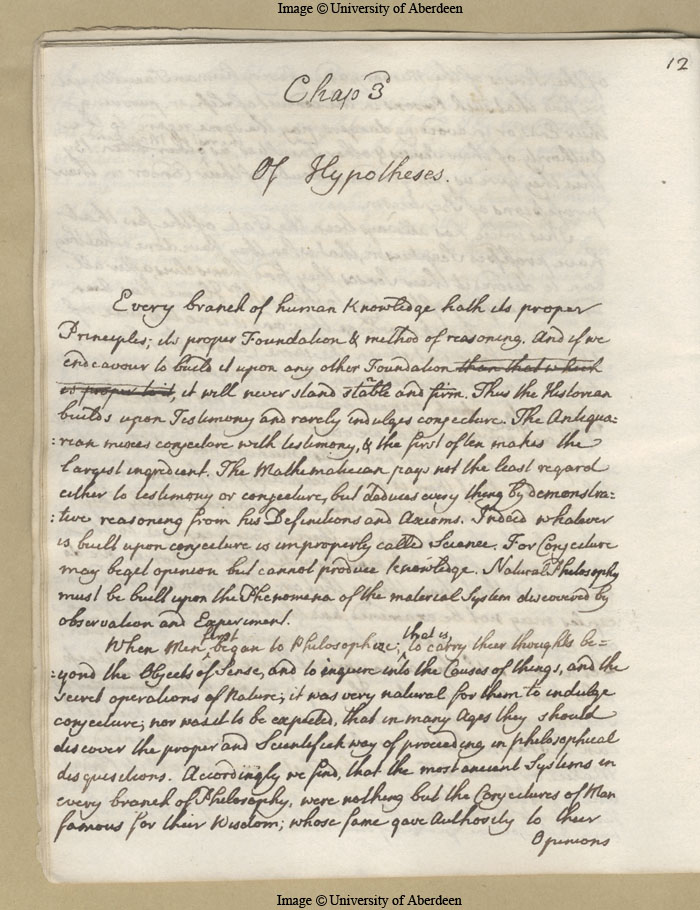 Image © University of Aberdeen
12
Chap 3
Of Hypotheses.
Every branch of human Knowledge hath its proper
Principles; its proper Foundation & method of reasoning. And if we
endeavour to build it upon any other Foundation than that which
is proper to it, it will never stand stable and firm. Thus the Historian
builds upon Testimony and rarely indulges conjecture. The Antequa=
:rian mixes conjecture with testimony, & the first often makes the
largest ingredient. The Mathematician pays not the least regard
either to testimony or conjecture, but deduces every thing by demonstra=
:tive reasoning from his Definitions and Axioms. Indeed whatever
is built upon conjecture is improperly called Science. For Conjecture
may beget opinion but cannot produce Knowledge. Natural Philosophy
must be built upon the Phenomena of the material System discovered by
observation and Experiment.
When Men first began to Philosophize, that is, to carry their thoughts be=
:yond the Objects of Sense, and to inquire into the Causes of things, and the
secret operations of Nature; it was very natural for them to indulge
conjecture; nor was it to be expected, that in many Ages they should
discover the proper and Scientifick way of proceeding in philosophical
disquisitions. Accordingly we find, that the most ancient Systems in
every branch of Philosophy, were nothing but the Conjectures of Men
famous for their Wisdom; whose fame gave Authority to their
Opinions
Image © University of Aberdeen